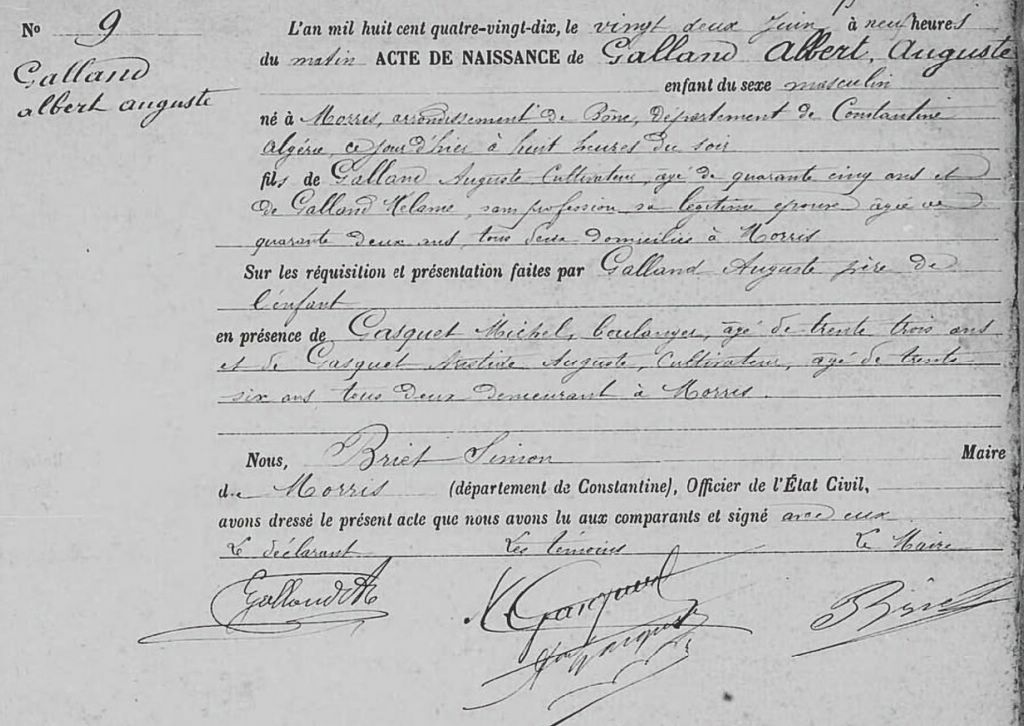 No 9
Galland
albert auguste
L'an mil huit cent quatre-vingt-dix, le vingt deux Juin, à neuf heures
du matin ACTE DE NAISSANCE de Galland Albert, Auguste
enfant du sexe masculin
né à Morris, arrondissement de Bône, département de Constantine
Algérie, ce jour d'hier à huit heures du soir
fils de Galland Auguste Cultivateur, agé de quarante cinq ans et
de Galland Melanie, sans profession sa légitime epouse âgée de
quarante deux ans, tous deux domiciliés à Morris
Sur les réquisition et présentation faites par Galland Auguste père de
l'enfant
en présence de Gasquet Michel, boulanger, âgé de trente trois ans
et de Gasquet Auguste, Cultivateur, agé de trente
six ans tous deux demeurant à Morris.
Nous, Briet Simon Maire
de Morris (département de Constantine), Officier de l'État Civil,
avons dressé le présent acte que nous avons lu aux comparants et signé avec eux
Le déclarant Les témoins Le Maire
Galland M Gasquet Briet
Gasquet